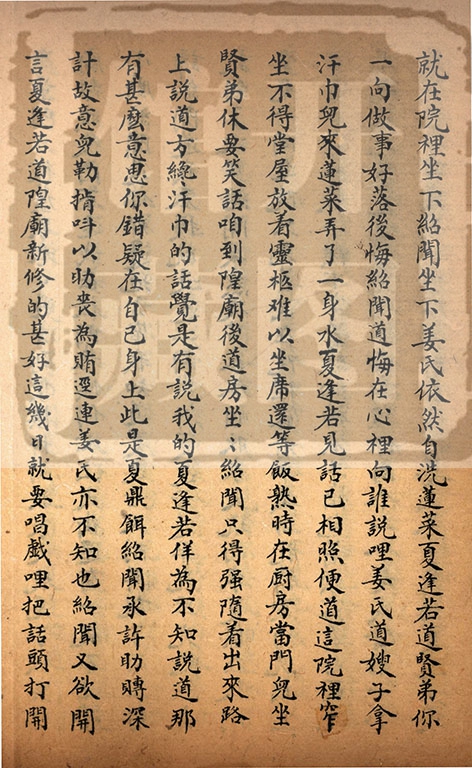 就在院裡坐下紹聞坐下姜氏依然自洗蓮菜夏逢若道賢弟你
一向做事好落後悔紹聞道悔在心裡向誰說哩姜氏道嫂子拿
汗巾兒來蓮菜弄了一身水夏逢若見話已相照便道這院裡窄
坐不得堂屋放着靈柩难以坐席還等飯熟時在厨房當門兒坐
賢弟休要笑話咱到隍廟後道房坐〻紹聞只得强隨着出來路
上説道方纔汗巾的話覺是有說我的夏逢若佯為不知説道那
有甚麽意思你錯疑在自己身上此是夏鼎餌紹聞承許助賻深
計故意兒勒掯呌以助喪為賄逕連姜氏亦不知也紹聞又欲開
言夏逢若道隍廟新修的甚好這幾日就要唱戲哩把話頭打開